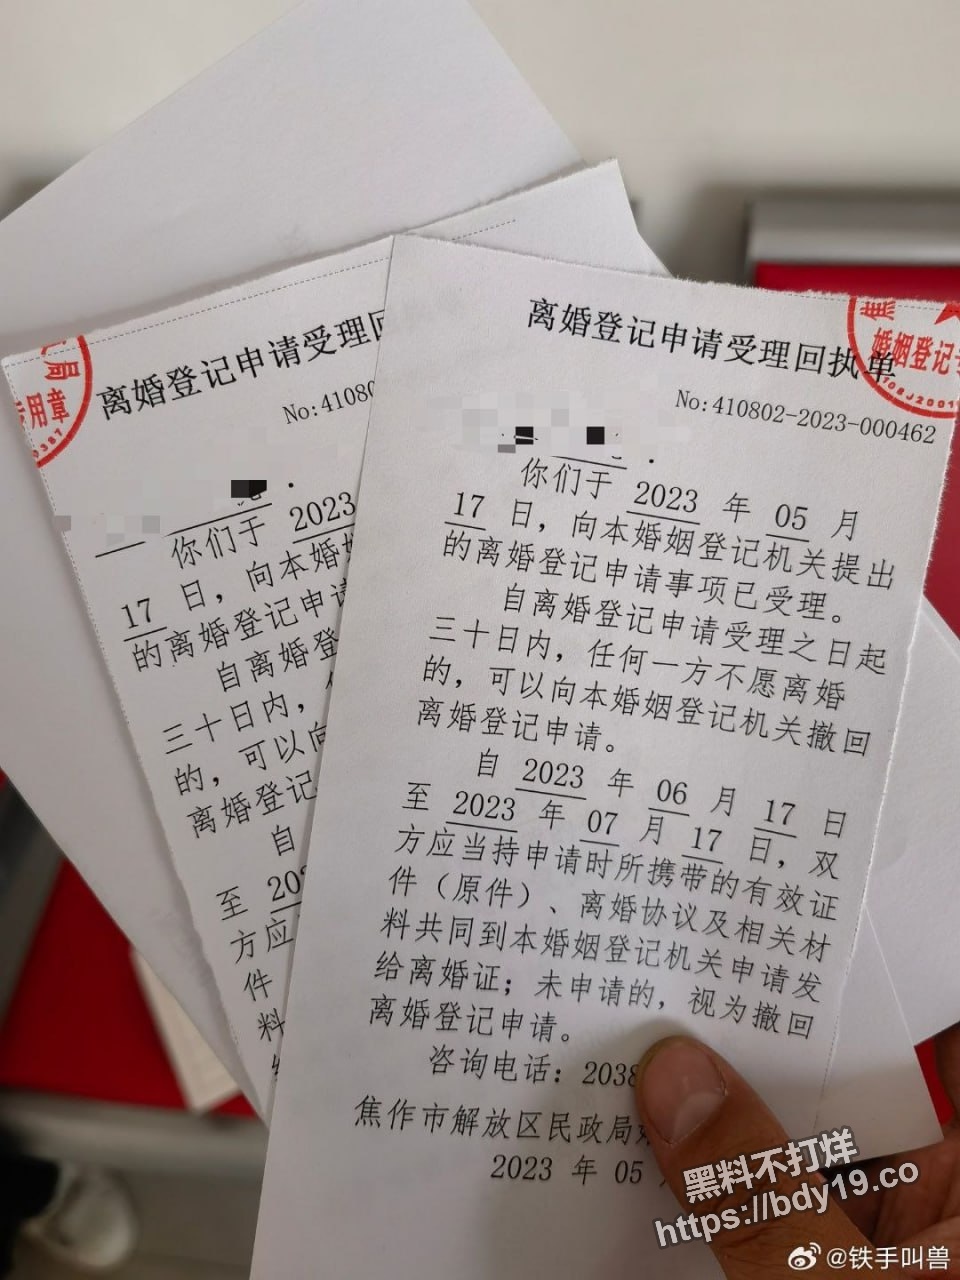 局
专用章
离婚登记申请受理回
No:41080
你们于 2023
17 日，向本婚姻
的离婚登记申请
自离婚登
三十日内，
的，可以向
离婚登记
自
至 202
方应
件
料
离婚登记申请受理回执单
焦
婚姻登记专
No:410802-2023-000462
你们于 2023 年 05 月
17 日，向本婚姻登记机关提出
的离婚登记申请事项已受理。
自离婚登记申请受理之日起
三十日内，任何一方不愿离婚
的，可以向本婚姻登记机关撤回
离婚登记申请。
自 2023 年 06 月 17 日
至 2023 年 07 月 17 日，双
方应当持申请时所携带的有效证
件（原件）、离婚协议及相关材
料共同到本婚姻登记机关申请发
给离婚证；未申请的，视为撤回
离婚登记申请。
咨询电话：2038
焦作市解放区民政局
2023 年 05
黑料不打烊
https://bdy19.co
@铁手叫兽